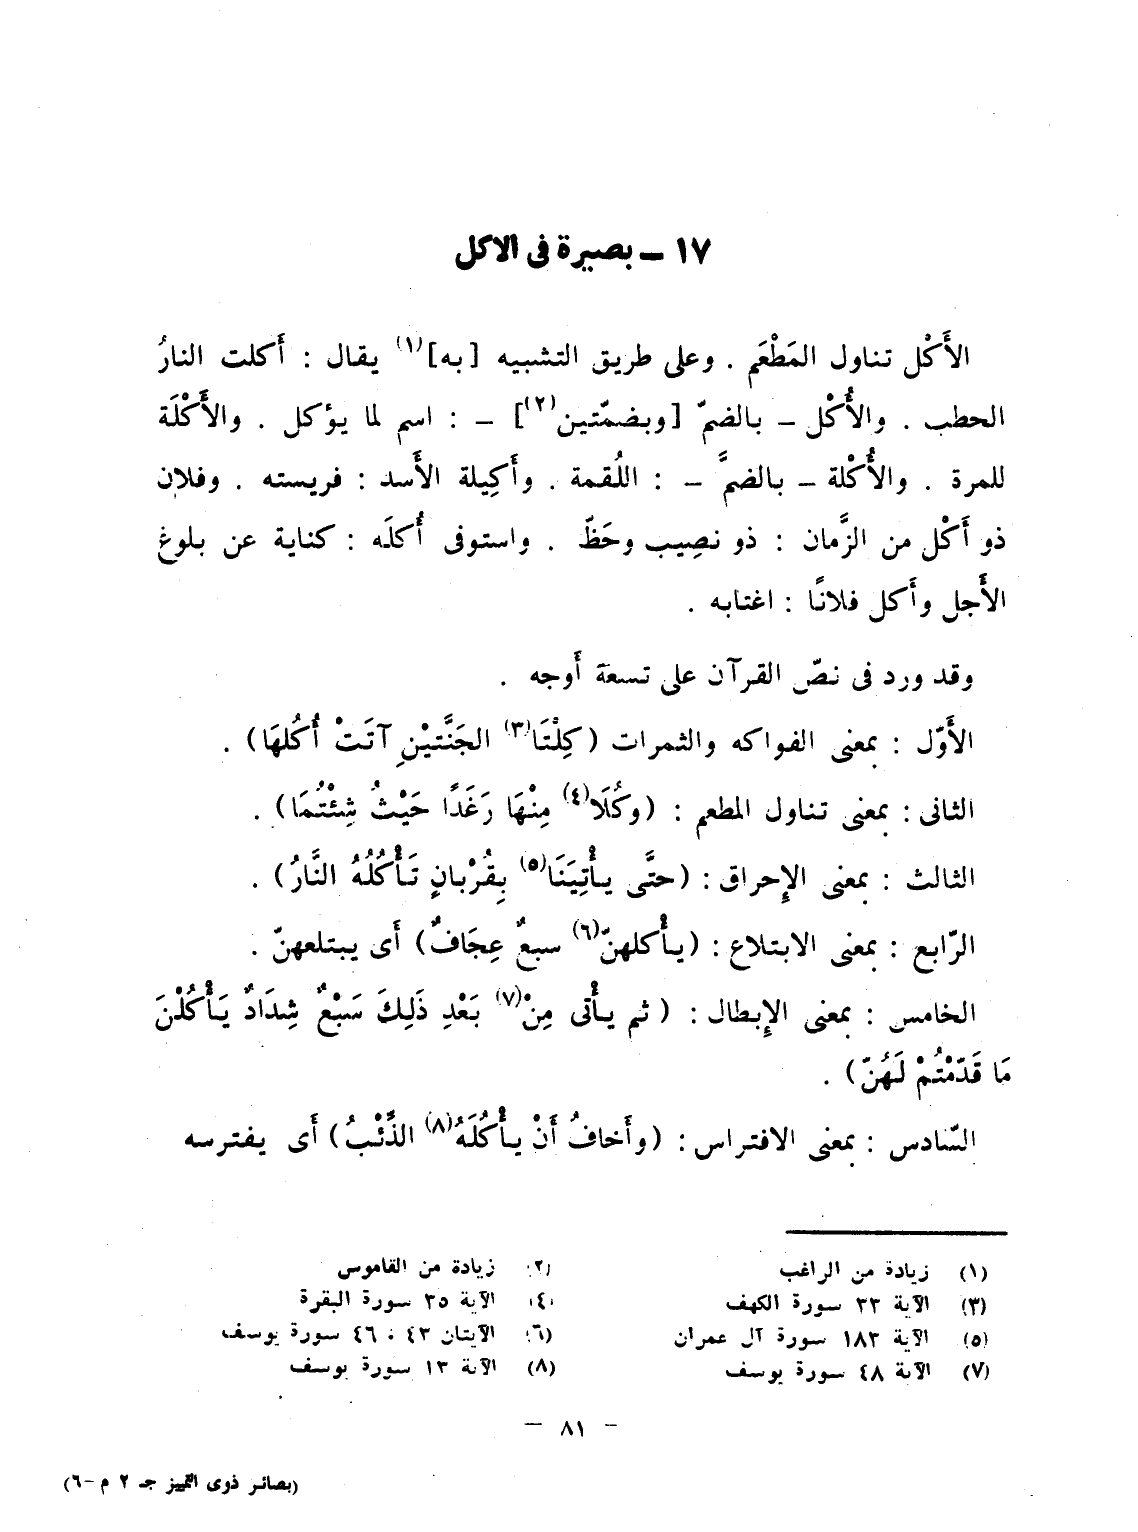 ١٧ ــ بصيرة فى الاكل
الأَكْل تناول المَطْعَم . وعلى طريق التشبيه [به](١) يقال : أَكلت النارُ
الحطب . والأُكْل ــ بالضمّ [وبضمّتين(٢)] ــ : اسم لما يؤكل . والأَكْلَة
للمرة . والأُكْلة ــ بالضمَّ ــ : اللُقمة . وأَكِيلة الأَسد : فريسته . وفلان
ذو أَكْل من الزَّمان : ذو نصِيب وحَظّ . واستوفى أُكلَه : كناية عن بلوغ
الأَجل وأَكل فلانًا : اغتابه .
وقد ورد فى نصّ القرآن على تسعة أَوجه .
الأَوّل : بمعنى الفواكه والثمرات (كِلْتَا(٣) الجَنَّتيْنِ آتَتْ أُكُلهَا) .
الثانى : بمعنى تناول المطعم : (وكُلَا(٤) مِنْهَا رَغَدًا حَيْثُ شِئْتُمَا) .
الثالث : بمعنى الإِحراق : (حتَّى يأْتِيَنَا(٥) بِقُرْبانٍ تَأْكُلُهُ النَّارُ) .
الرّابع : بمعنى الابتلاع : (يأْكلهنّ(٦) سبعٌ عِجَافٌ) أَى يبتلعهنّ .
الخامس : بمعنى الإِبطال : (ثم يأْتى مِنْ(٧) بَعْدِ ذَلِكَ سَبْعٌ شِدَادٌ يَأْكُلْنَ
مَا قَدّمْتُمْ لَهُنّ) .
السّادس : بمعنى الافتراس : (وأَخافُ أَنْ يأْكُلَهُ(٨) الذِّئْبُ) أَى يفترسه
(١) زيادة من الراغب
(٢) زيادة من القاموس
(٣) الآية ٣٣ سورة الكهف
(٤) الآية ٣٥ سورة البقرة
(٥) الآية ١٨٣ سورة آل عمران
(٦) الآيتان ٤٣ ، ٤٦ سورة يوسف
(٧) الآية ٤٨ سورة يوسف
(٨) الآية ١٣ سورة يوسف
— ٨١ —
(بصائر ذوى التمييز جـ ٢ م -٦)